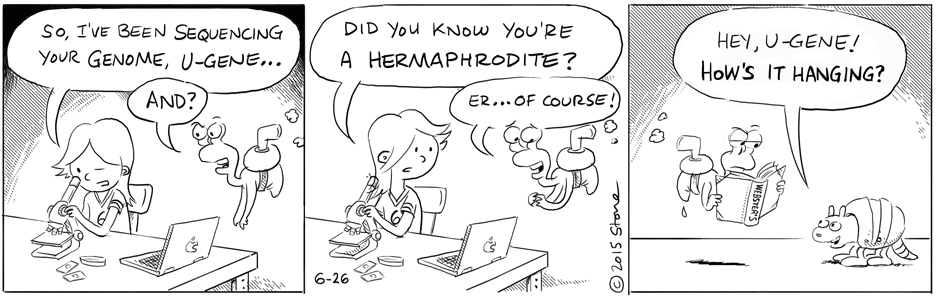 SO, I'VE BEEN SEQUENCING
YOUR GENOME, U-GENE...
AND?
DID YOU KNOW YOU'RE
A HERMAPHRODITE?
ER...OF COURSE!
6-26
©2015 Stone
HEY, U-GENE!
HOW'S IT HANGING?
WEBSTER'S